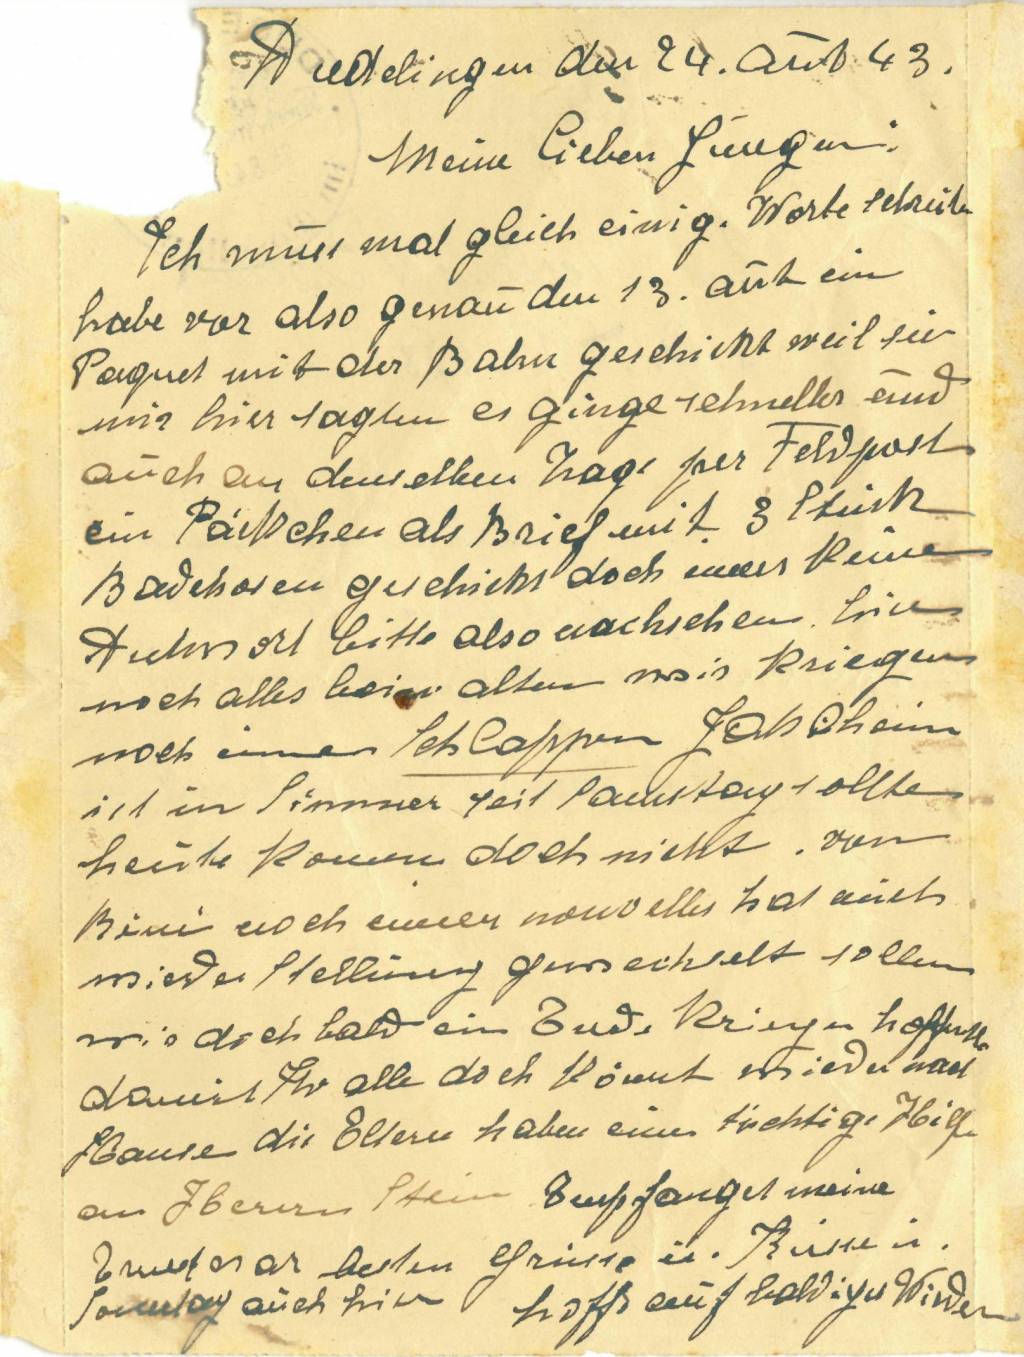 Duddelingen den 24. Aŭt 43.
Meine Lieben Jŭngen:
Ich mŭss mal gleich einig. Worte schreiben
habe vor also genaŭ den 13. aŭt ein
Paquet mit der Bahn geschickt weil sie
mir hier sagten es ginge schneller ŭnd
aŭch an demselben Tage per Feldpost
ein Päckchen als Brief mit 3 Stück
Badehosen geschickt doch immer keine
Antwort bitte also nachsehen. hier
noch alles beim alten wir kriegen
noch immer Schlappen
ist in Simmer seit Samstag sollte
heŭte komen doch nicht. von
noch immer nouvelles hat aŭch
wieder Stellŭng gewechselt sollen
wir doch bald ein Ende kriegen
damit Ihr alle doch könnt wieder nach
Hause die Eltern haben eine tüchtige Hilfe
an Herrn Stein Empfanget meine
besten Grüsse ŭ. Küsse ŭ.
Sonntag aŭch hier hoffe aŭf baldiges Wieder